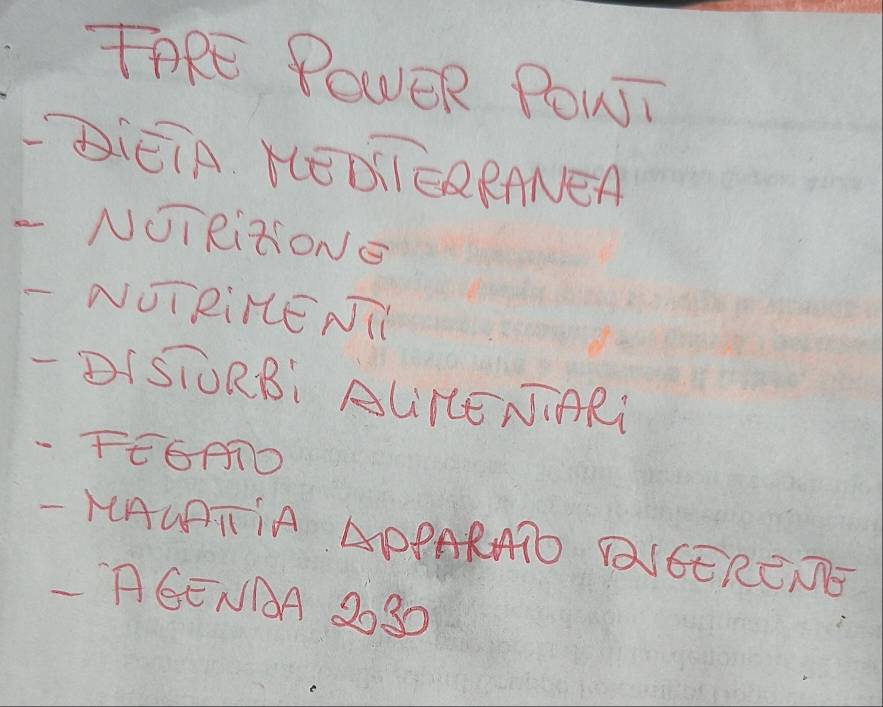 FARE POWER POINT
- DIETA MEDITERRANEA
- NUTRIZIONE
- NUTRIMENTI
- DISTURBI ALIMENTARI
- FEGATO
- MALATTIA APPARATO DIGERENTE
- AGENDA 2030